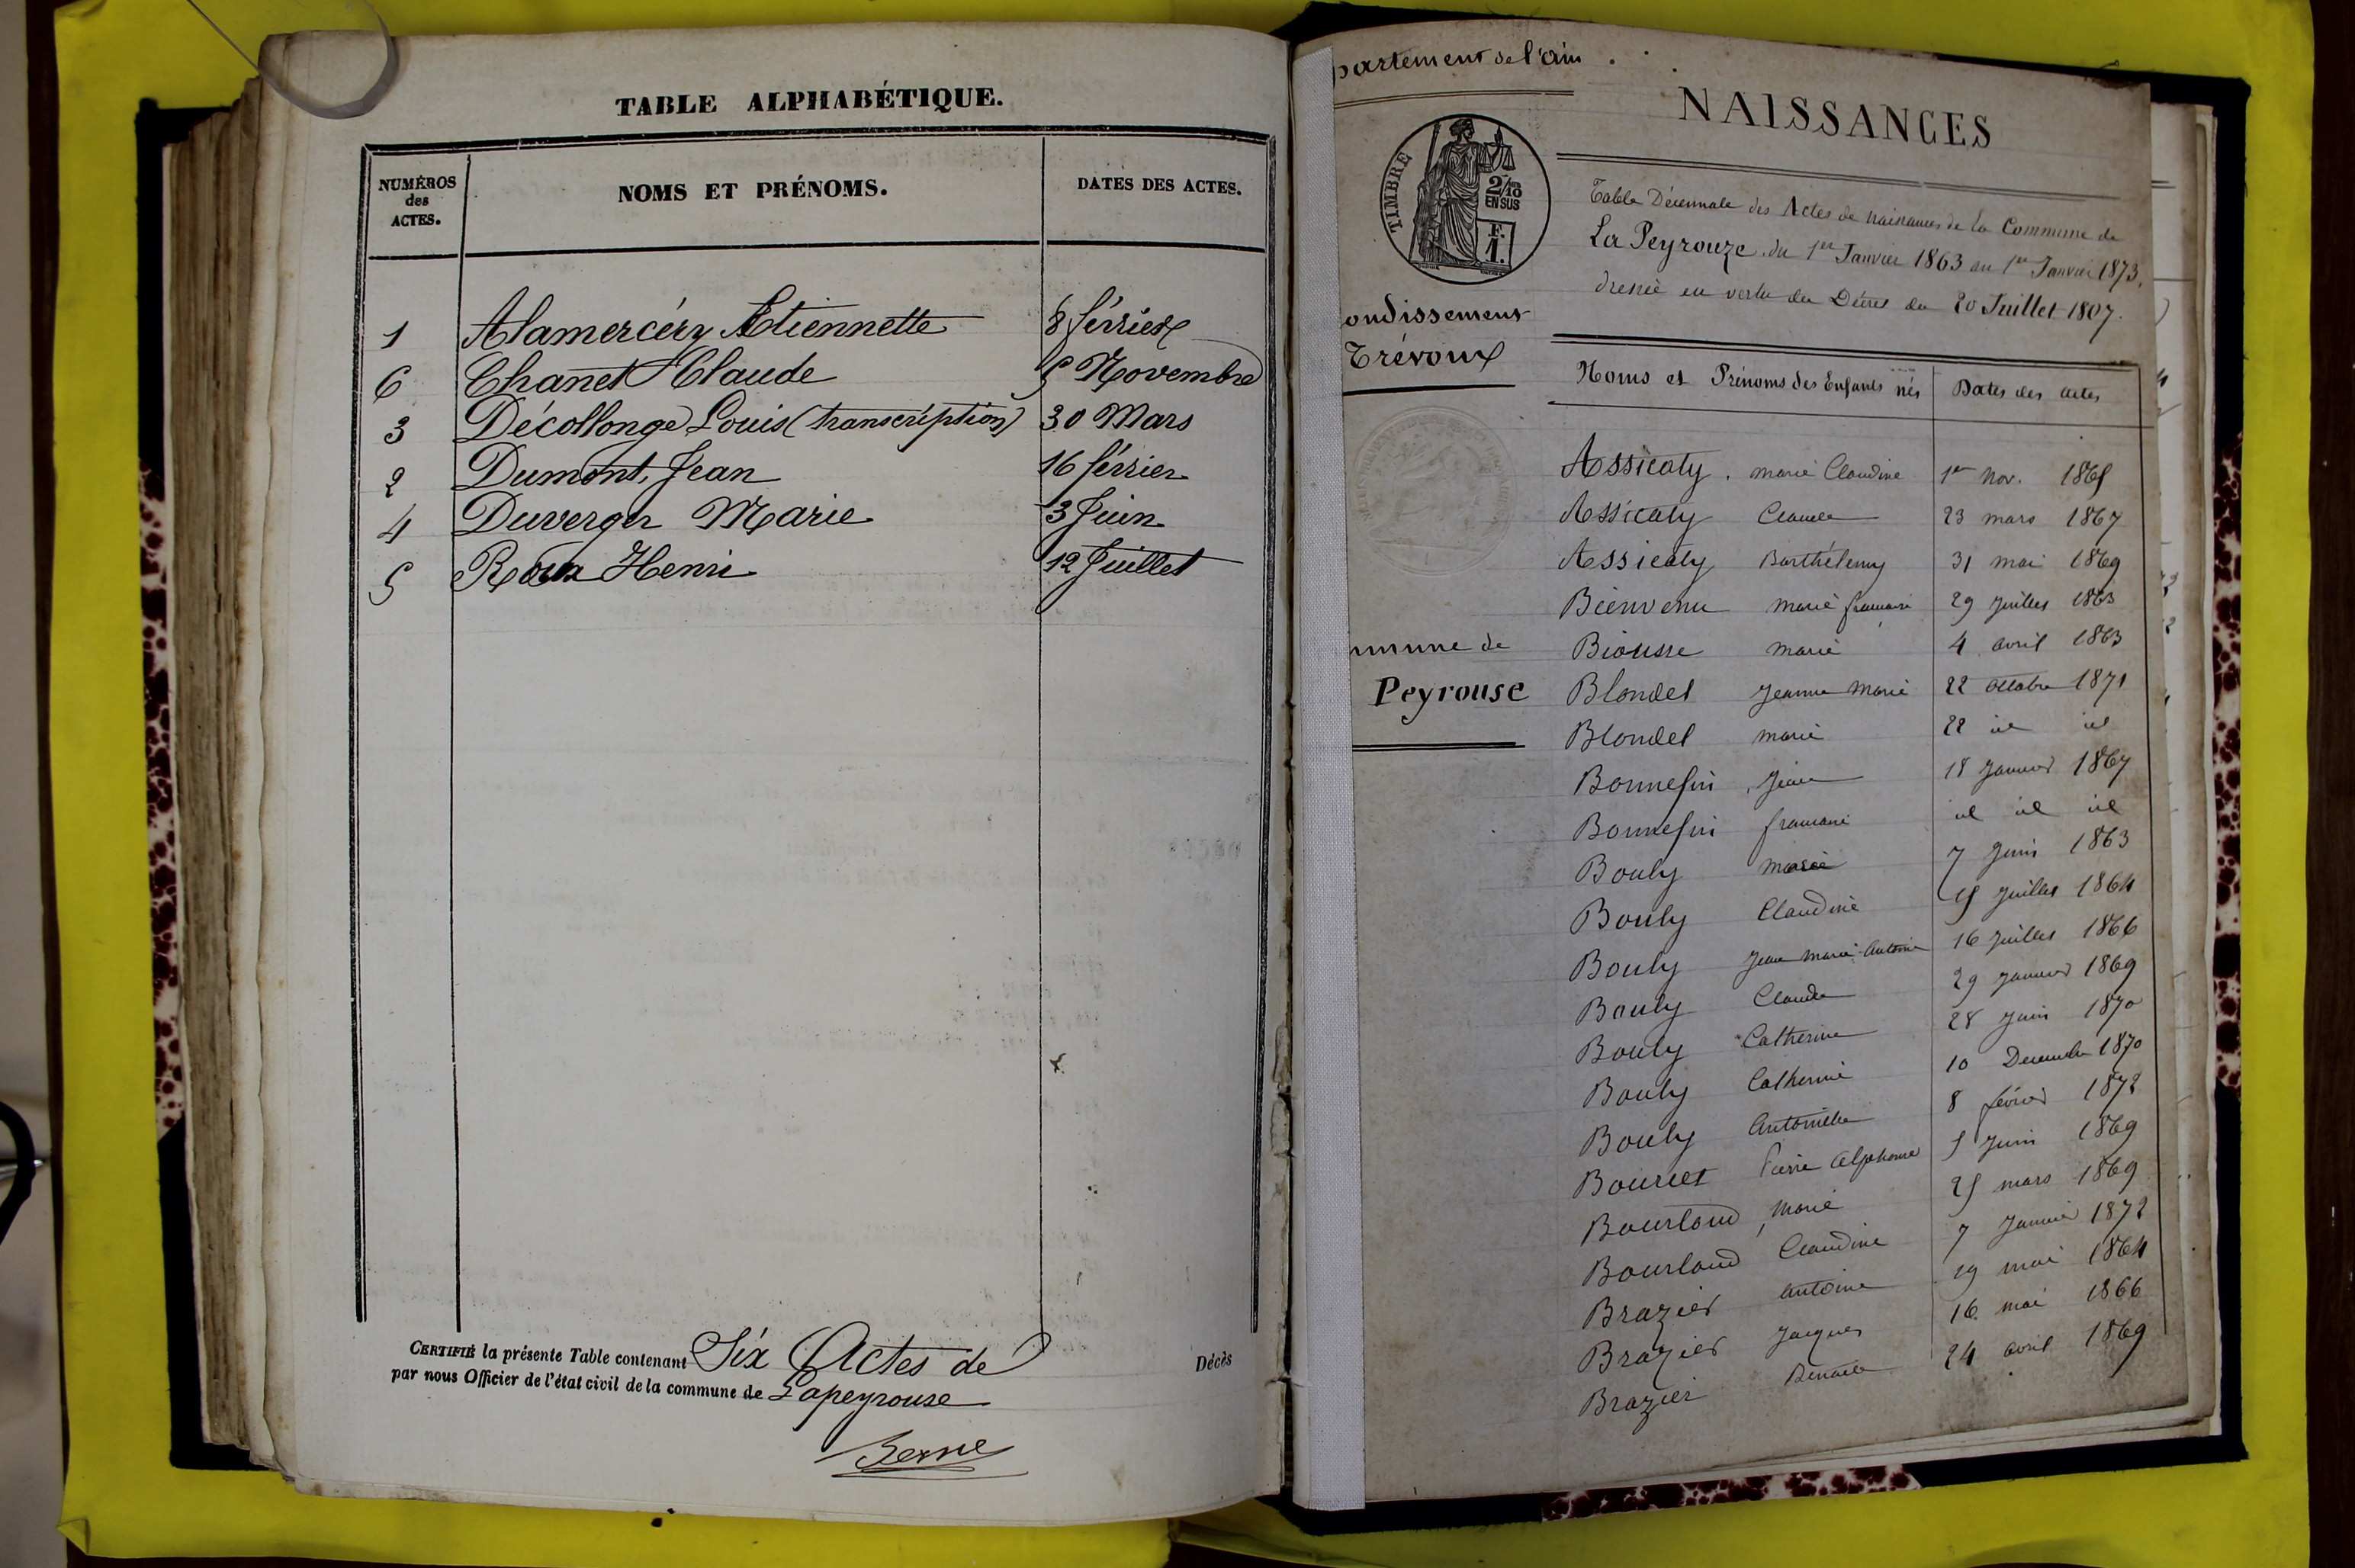 TABLE ALPHABÉTIQUE.
NUMÉROS des ACTES. NOMS ET PRÉNOMS. DATES DES ACTES.
1 Alamercéry Etiennette 8 février
6 Chanet Claude 5 Novembre
3 Décollonge Louis (transcription) 30 Mars
2 Dumont, Jean 16 février
4 Duverger Marie 3 Juin
5 Roux Henri 12 Juillet
CERTIFIÉ la présente Table contenant Six Actes de Décès
par nous Officier de l'état civil de la commune de Lapeyrouse
Berne
partement de l'ain.
NAISSANCES
TIMBRE
2/10 EN SUS
F. 1.
Table Décennale des Actes de naissances de la Commune de
La Peyrouze du 1er Janvier 1863 au 1er Janvier 1873,
dressée en vertu du Décret du 20 Juillet 1807.
ondissement
Trévoux
mmune de
Peyrouse
Noms et Prénoms des Enfants nés Dates des actes
Assicaty. marie Claudine 1er nov. 1865
Assicaty Claude 23 mars 1867
Assicaty Barthélemy 31 mai 1869
Bienvenu marie francoise 29 juillet 1863
Biousse marie 4 avril 1863
Blondel jeanne marie 22 octobre 1871
Blondel marie 22 id id
Bonnefin jean 18 janvier 1867
Bonnefin francoise id id id
Bouly marie 7 juin 1863
Bouly Claudine 15 juillet 1864
Bouly jean marie antoine 16 juillet 1866
Bouly Claude 29 janvier 1869
Bouly Catherine 28 juin 1870
Bouly Catherine 10 Decembre 1870
Bouly antoinette 8 février 1872
Bourcet Pierre alphonse 5 juin 1869
Bourloud marie 25 mars 1869
Bourloud Claudine 7 janvier 1872
Brazier antoine 19 mai 1864
Brazier jacques 16 mai 1866
Brazier Benoite 24 avril 1869